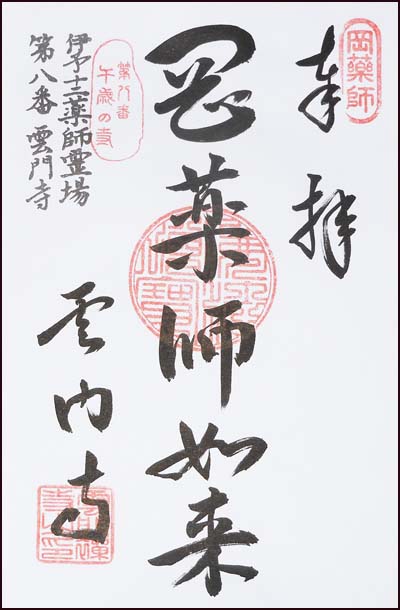 岡藥師
奉拝
岡薬師如来
第八番
午歳の寺
伊予十二薬師霊場
第八番 雲門寺
雲門寺